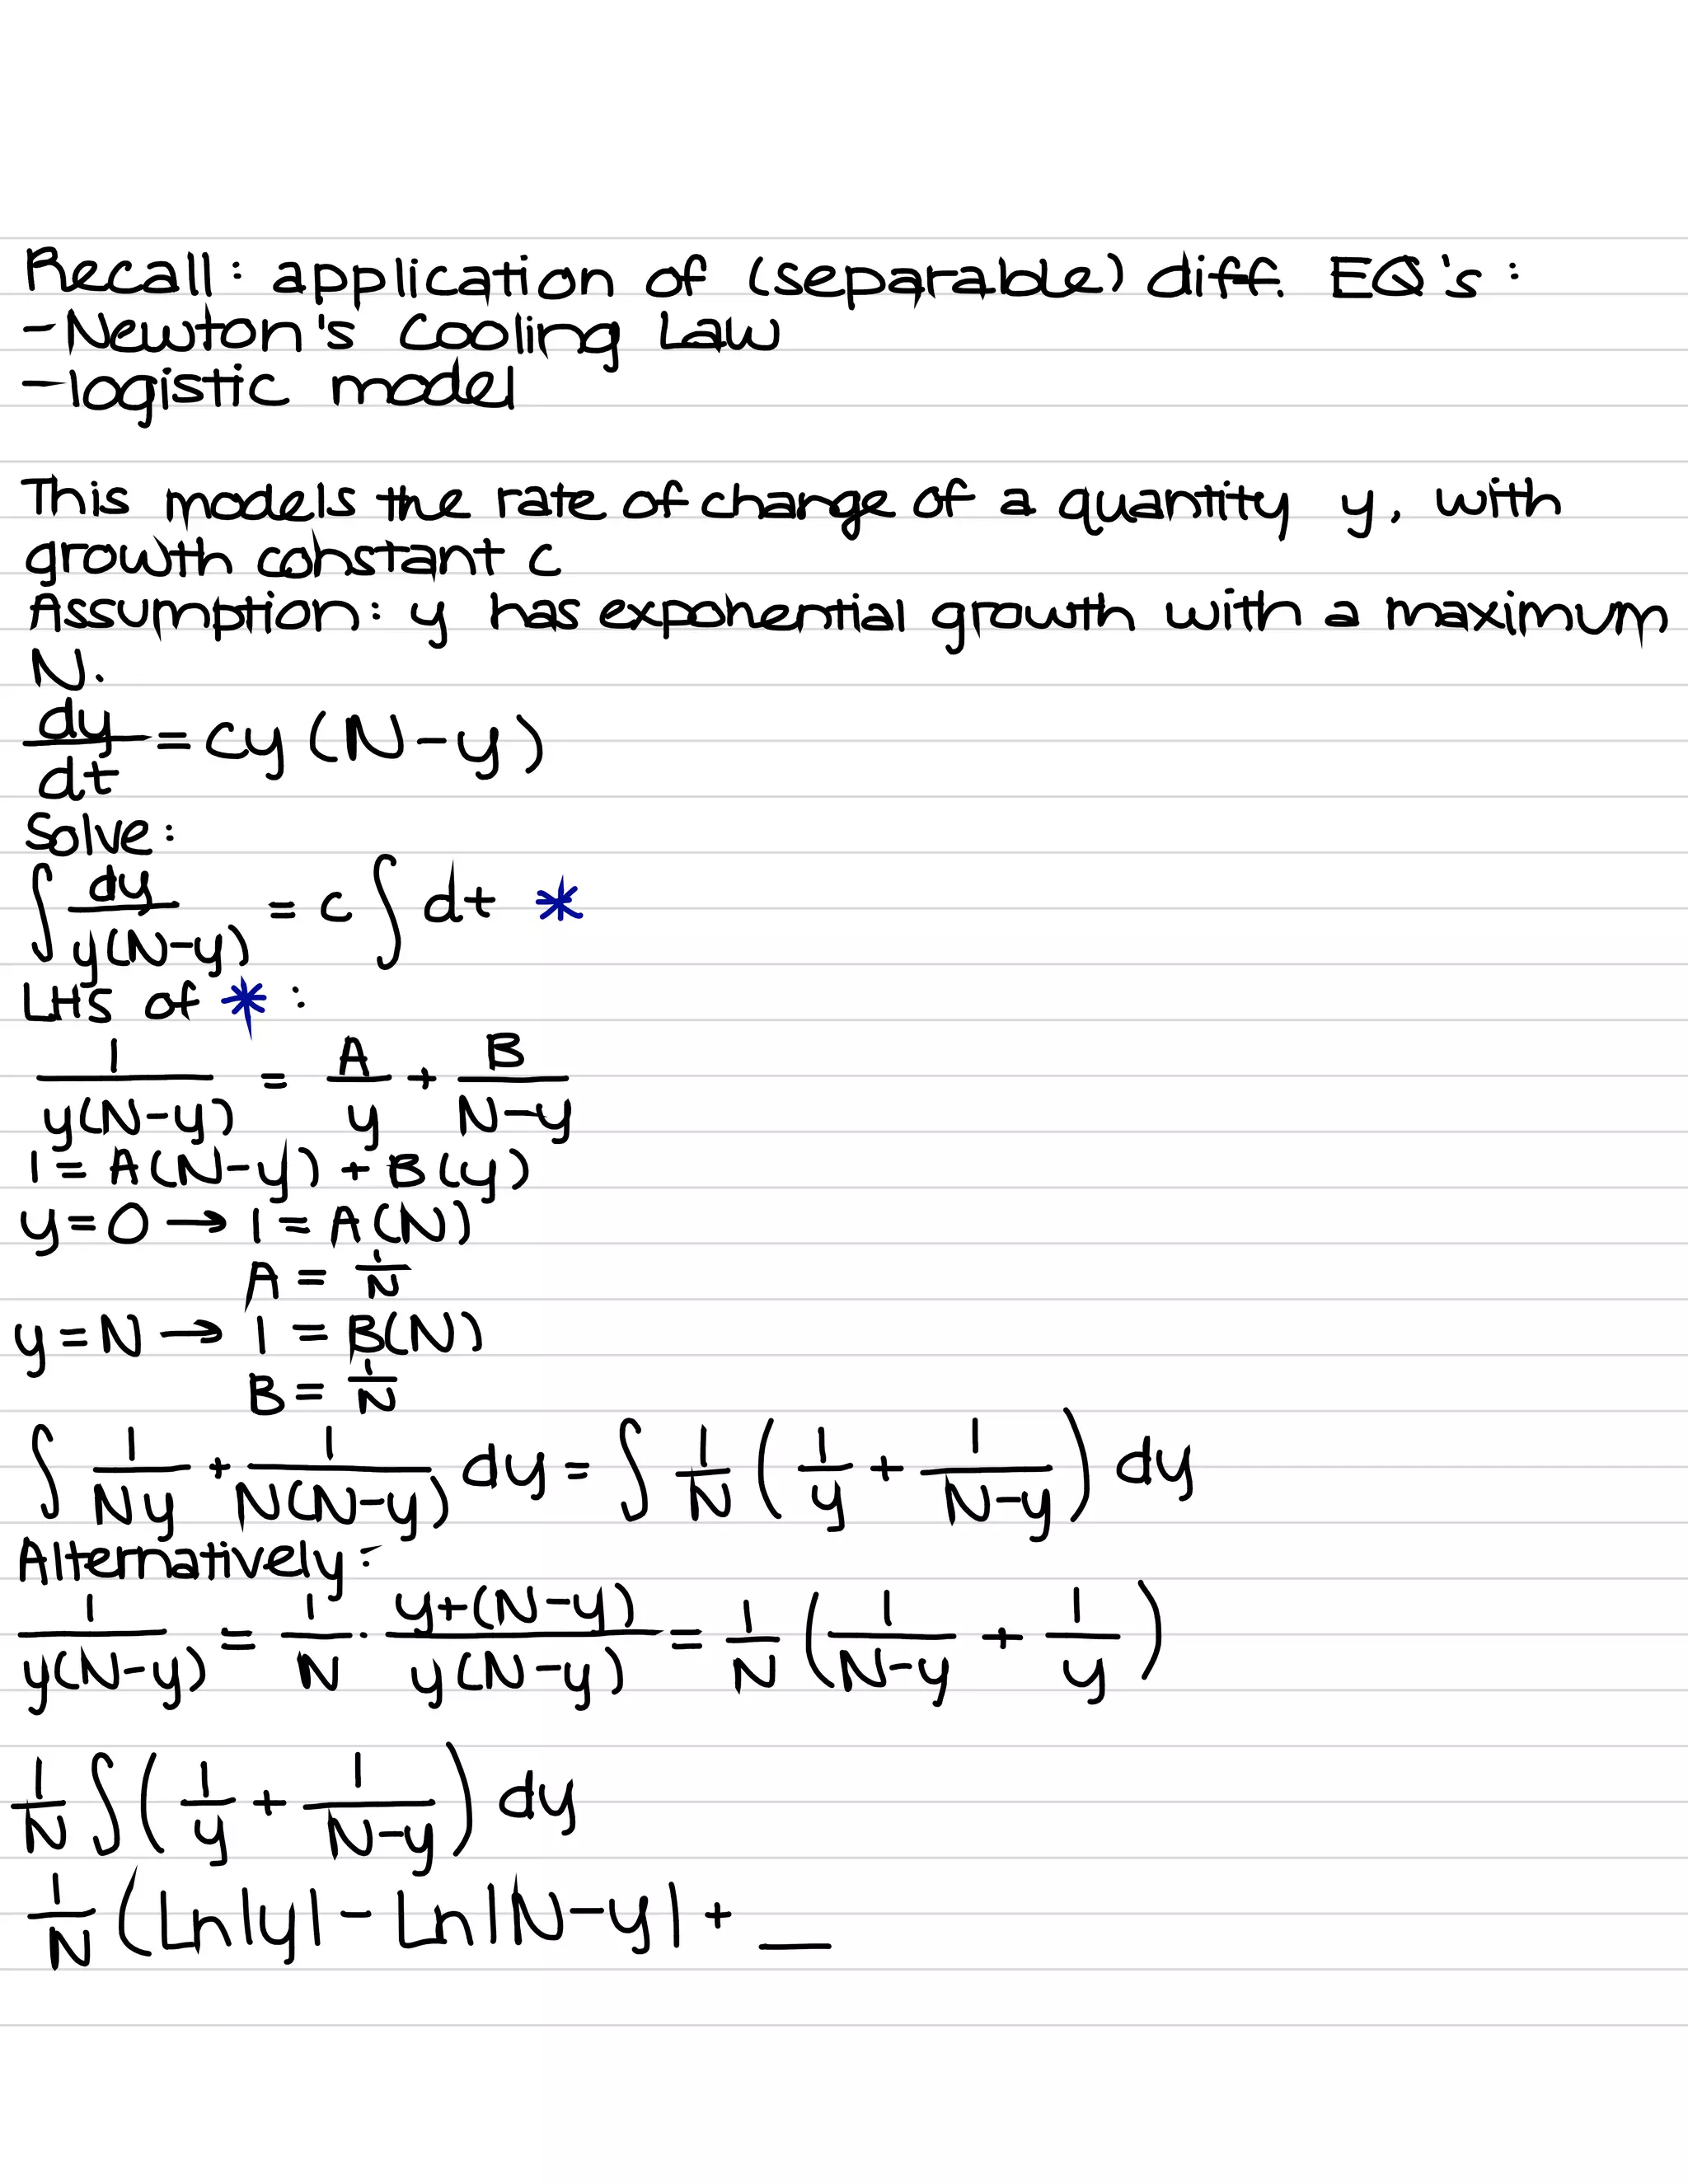 Recall: application of (separable) diff. EQ's:
-Newton's Cooling Law
-logistic model
This models the rate of change of a quantity y, with
growth constant c
Assumption: y has exponential growth with a maximum
N.
dy/dt = cy(N-y)
Solve:
∫ dy/y(N-y) = c∫dt *
LHS of *:
1/y(N-y) = A/y + B/N-y
1 = A(N-y) + B(y)
y=0 → 1 = A(N)
A = 1/N
y=N → 1 = B(N)
B = 1/N
∫ 1/Ny + 1/N(N-y) dy = ∫ 1/N (1/y + 1/N-y) dy
Alternatively:
1/y(N-y) = 1/N · y+(N-y)/y(N-y) = 1/N (1/N-y + 1/y)
1/N ∫ (1/y + 1/N-y) dy
1/N (Ln|y| - Ln|N-y| + __